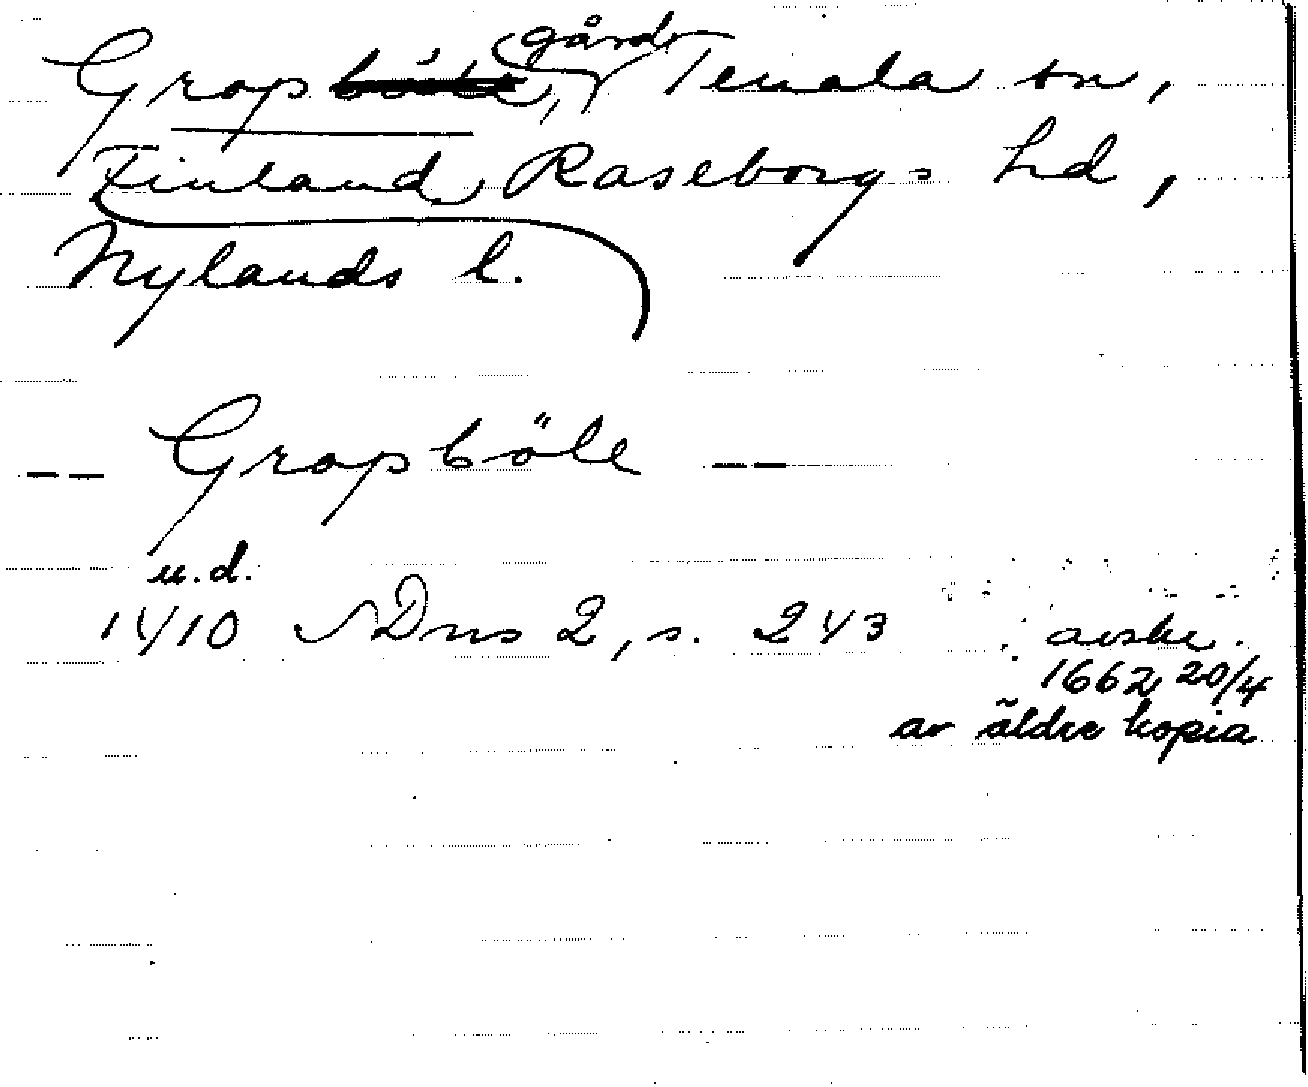 Grop böle, gård, Tenala sn,
Finland, Raseborgs hd,
Nylands l.
-- Gropböle --
u.d.
1410 SDns 2, s. 243 avskr.
1662 20/4
av äldre kopia